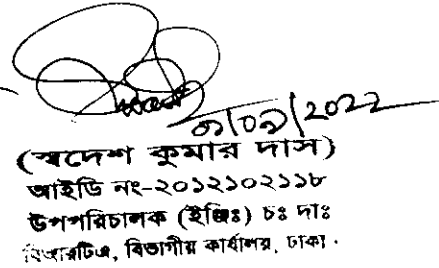 ৩১/০৯/2022
(স্বদেশ কুমার দাস)
আইডি নং-২০১২১০২১১৮
উপপরিচালক (ইঞ্জিঃ) চঃ দাঃ
বিআরটিএ, বিভাগীয় কার্যালয়, ঢাকা।